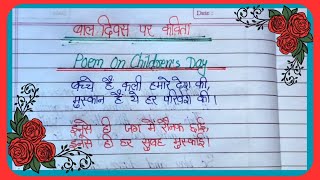 Date :
बाल दिवस पर कविता
Poem On Children's Day
बच्चे है कली हमारे देश की,
मुस्कान है ये हर परिवेश की।
इनसे ही जग में रौनक छाई,
इनसे ही हर सुबह मुस्काई।